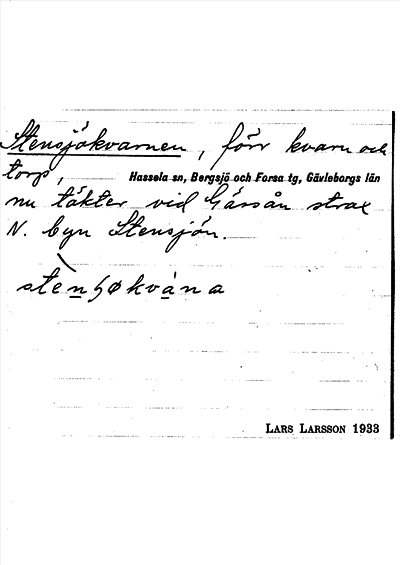 Stensjökvarnen, förr kvarn och
torp, Hassela sn, Bergsjö och Forsa tg, Gävleborgs län
nu täkter vid Gårsån strax
N. byn Stensjön.
stenʂøkvána
LARS LARSSON 1933